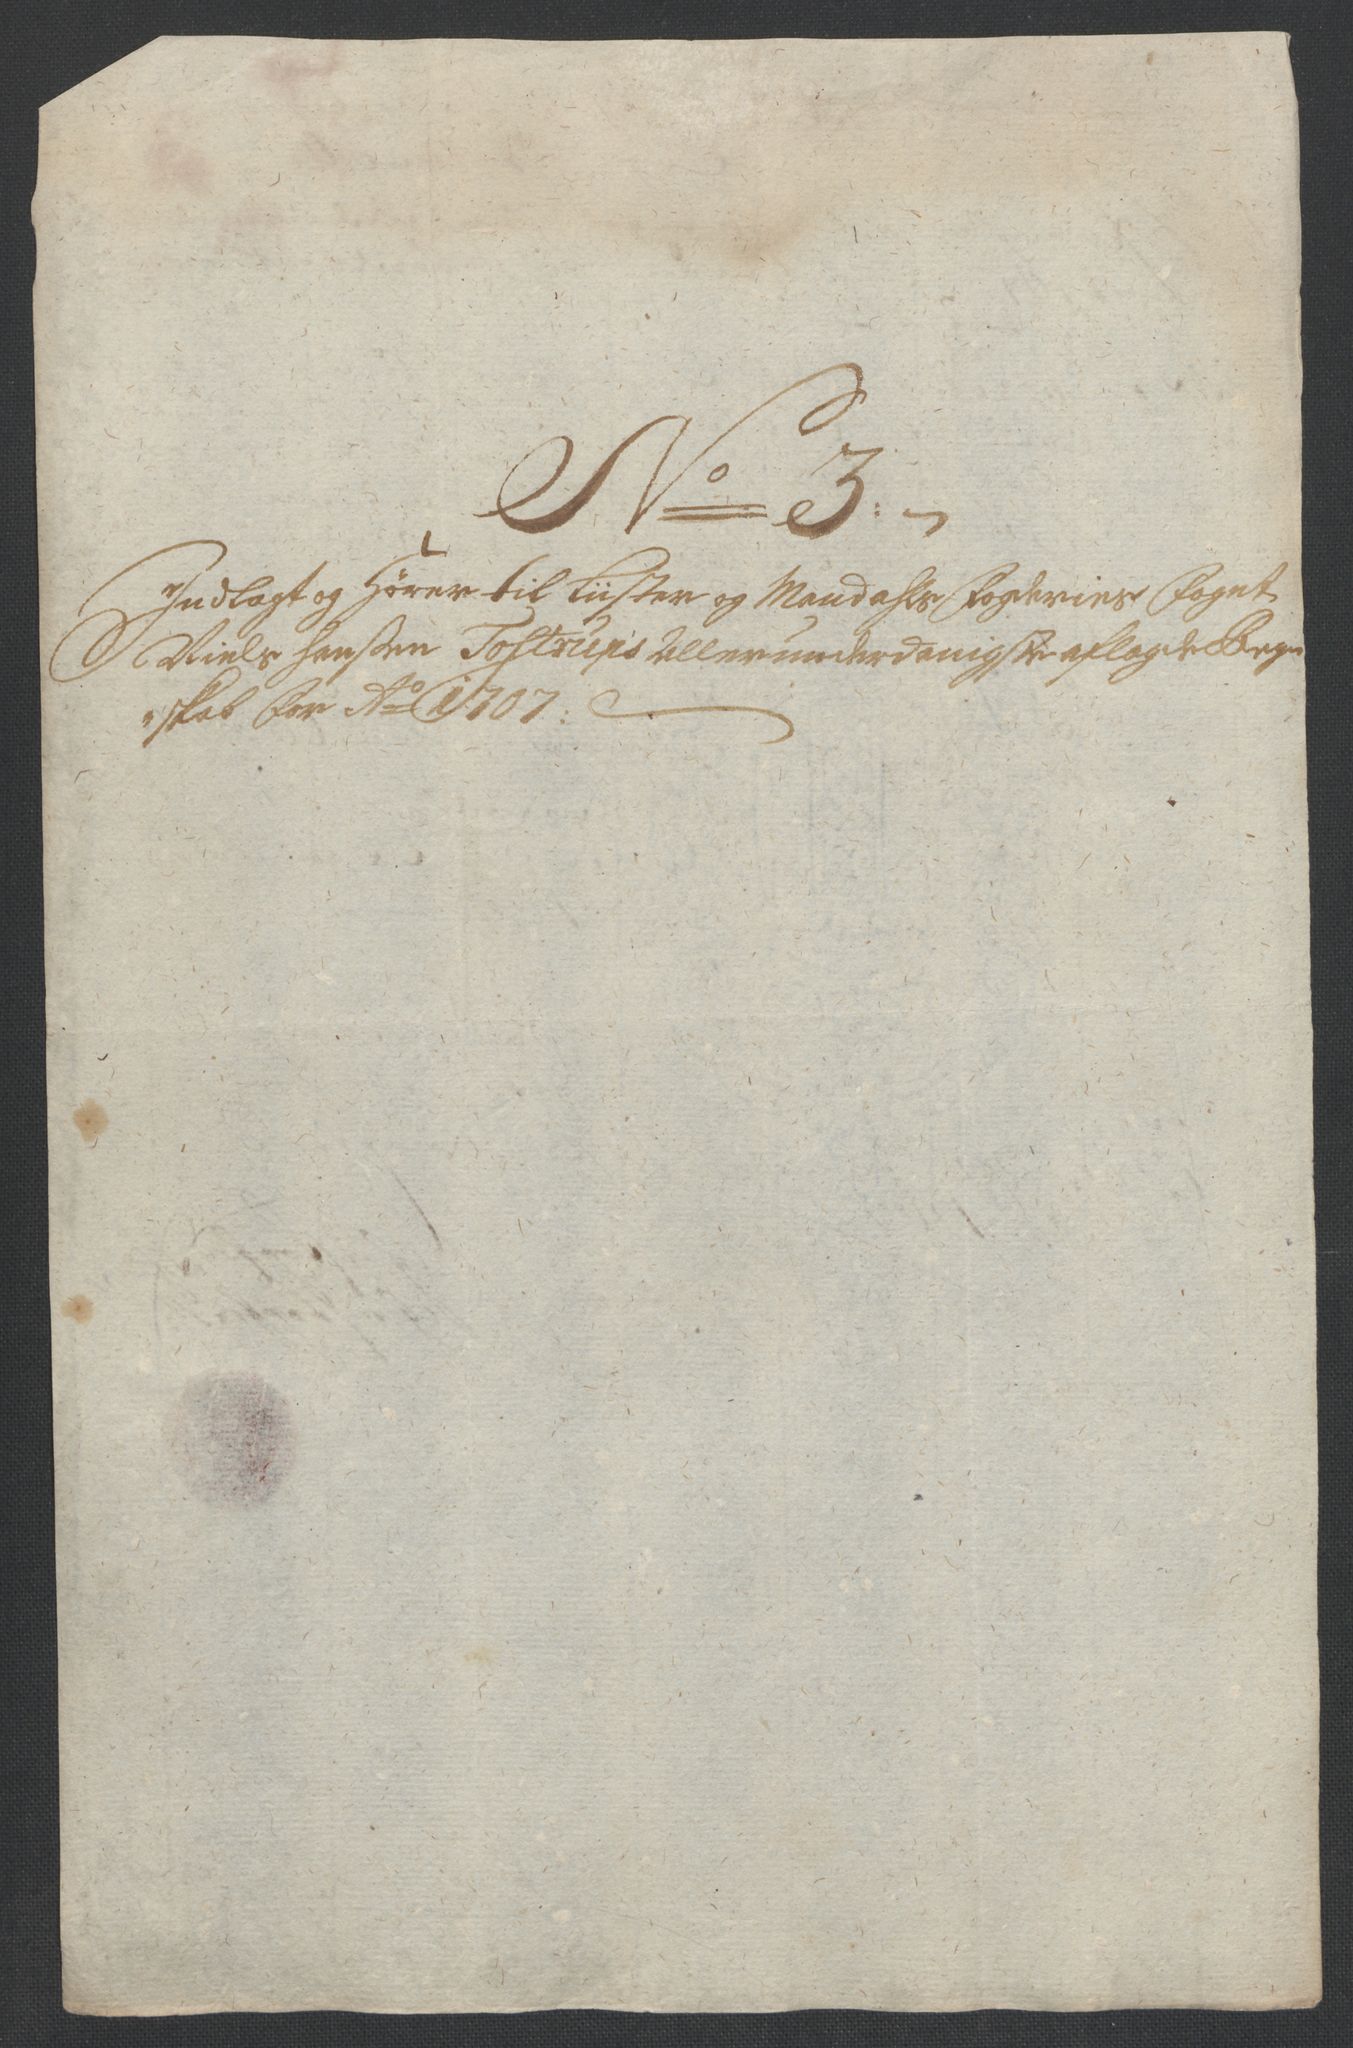 No 3:
Indlagt og Hörer til Lüster og Mandahls Fogderies Foget
Niels Hanssen Tostrups Allerunderdanigste aflagde Regn
skab for Ao 1707: